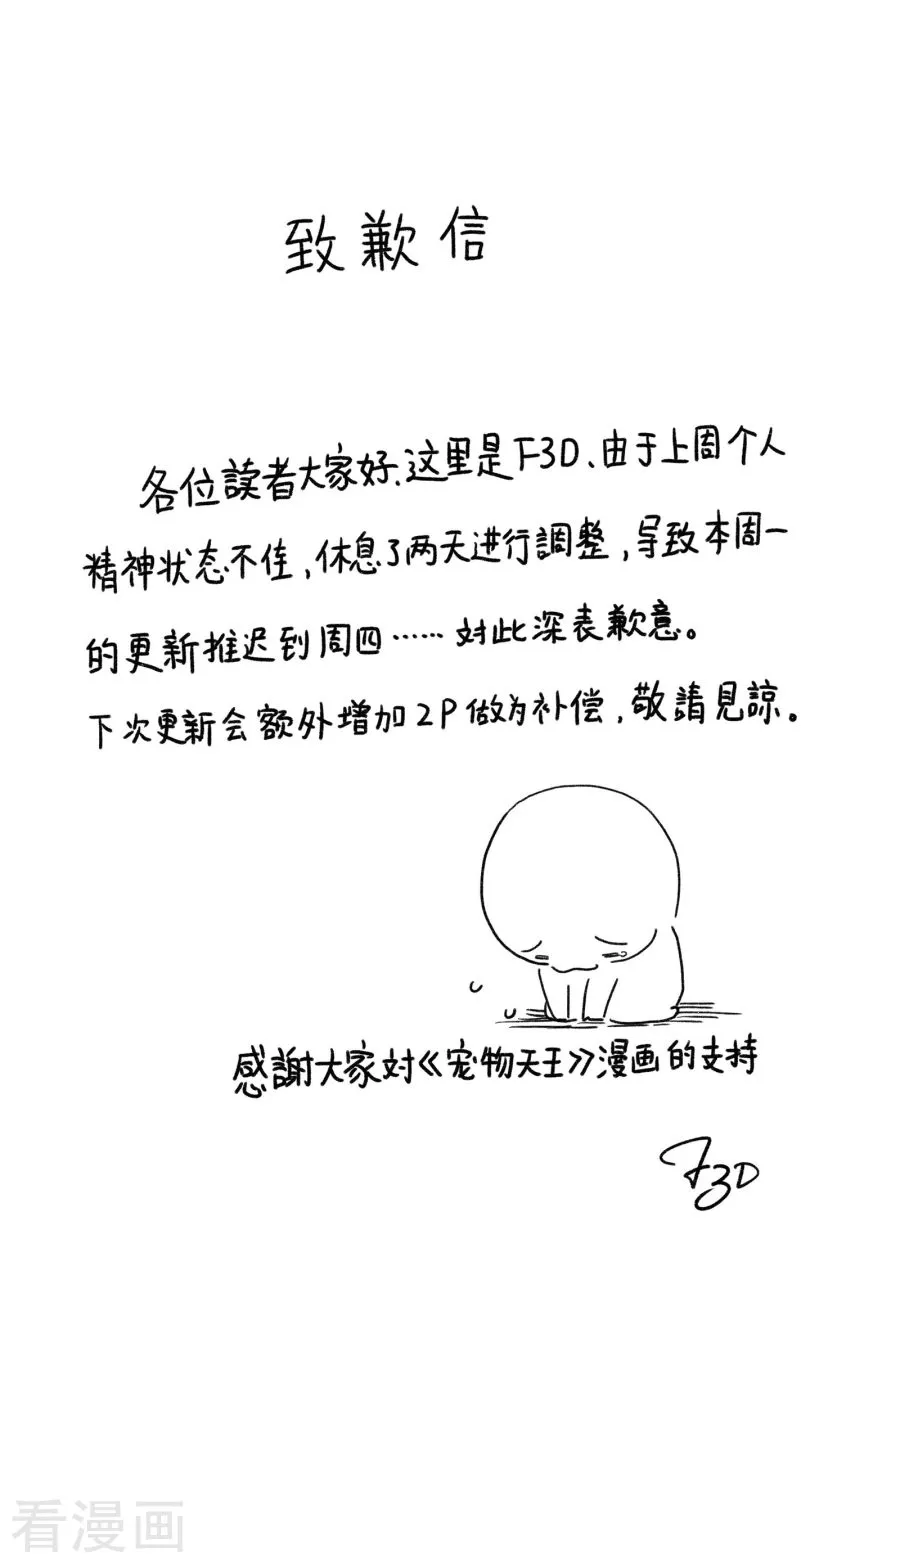 致歉信
各位読者大家好.这里是F3D、由于上周个人
精神状态不佳,休息了两天进行調整,导致本周一
的更新推迟到周四……対此深表歉意。
下次更新会额外增加2P做为补偿,敬請見諒。
感謝大家対《宠物天王》漫画的支持
F3D
看漫画